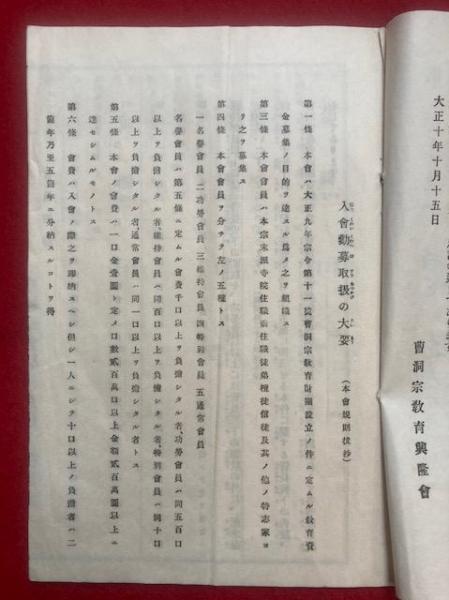 大正十年十月十五日
曹洞宗教育興隆會
入會勸募取扱の大要
(本會規則拔抄)
第一條 本會ハ大正九年宗令第十一號曹洞宗教育財團設立ノ件ニ定ムル教育資
金募集ノ目的ヲ達スル爲メ之ヲ組織ス
第三條 本會會員ハ本宗末派寺院住職前住職徒弟檀徒信徒及其ノ他ノ特志家ヨ
リ之ヲ募集ス
第四條 本會會員ヲ分チテ左ノ五種トス
一名譽會員 二功勞會員 三維持會員 四特別會員 五通常會員
名譽會員ハ第五條ニ定ムル會費千口以上ヲ負擔シタル者、功勞會員ハ同五百口
以上ヲ負擔シタル者、維持會員ハ同百口以上ヲ負擔シタル者、特別會員ハ同十口
以上ヲ負擔シタル者、通常會員ハ同一口以上ヲ負擔シタル者トス
第五條 本會ノ會費ハ一口金壹圓ト定メ口數貳百萬口以上金額貳百萬圓以上ニ
達セシムルモノトス
第六條 會費ハ入會ノ際之ヲ卽納スヘシ但シ一人ニシテ十口以上ノ負擔者ハ二
箇年乃至五箇年ニ分納スルコトヲ得